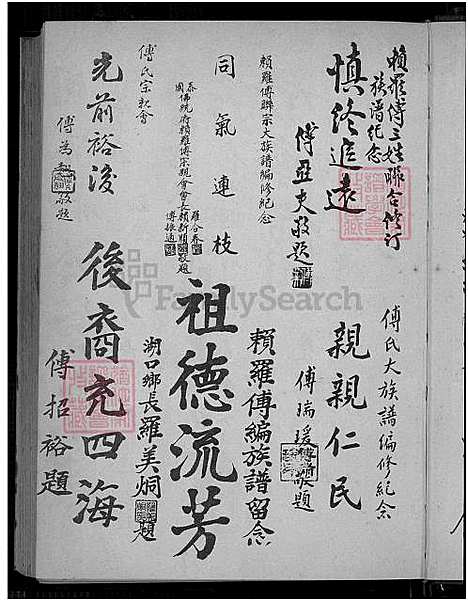 賴羅傅三姓聯合修訂
族譜紀念
慎終追遠
傅亞夫敬題
傅氏大族譜編修紀念
親親仁民
傅瑞瑗敬題
賴羅傅聯宗大族譜編修紀念
同氣連枝
泰國佛統府賴羅傅宗親會會長
羅合春
賴新順
傅振適
敬題
賴羅傅編族譜留念
祖德流芳
湖口鄉長羅美炯題
傅氏宗親會
光前裕後
敬題
後裔充四海
傅招裕題
FamilySearch